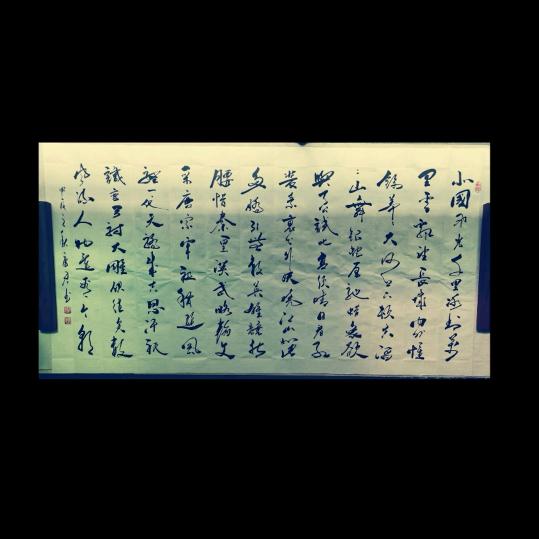 北国风光千里冰封万
里雪飘望长城内外惟
馀莽莽大河上下顿失滔
滔山舞银蛇原驰蜡象欲
与天公试比高须晴日看红
装素裹分外妖娆江山如此
多娇引无数英雄竞折
腰惜秦皇汉武略输文
采唐宗宋祖稍逊风
骚一代天骄成吉思汗只
识弯弓射大雕俱往矣数
风流人物还看今朝